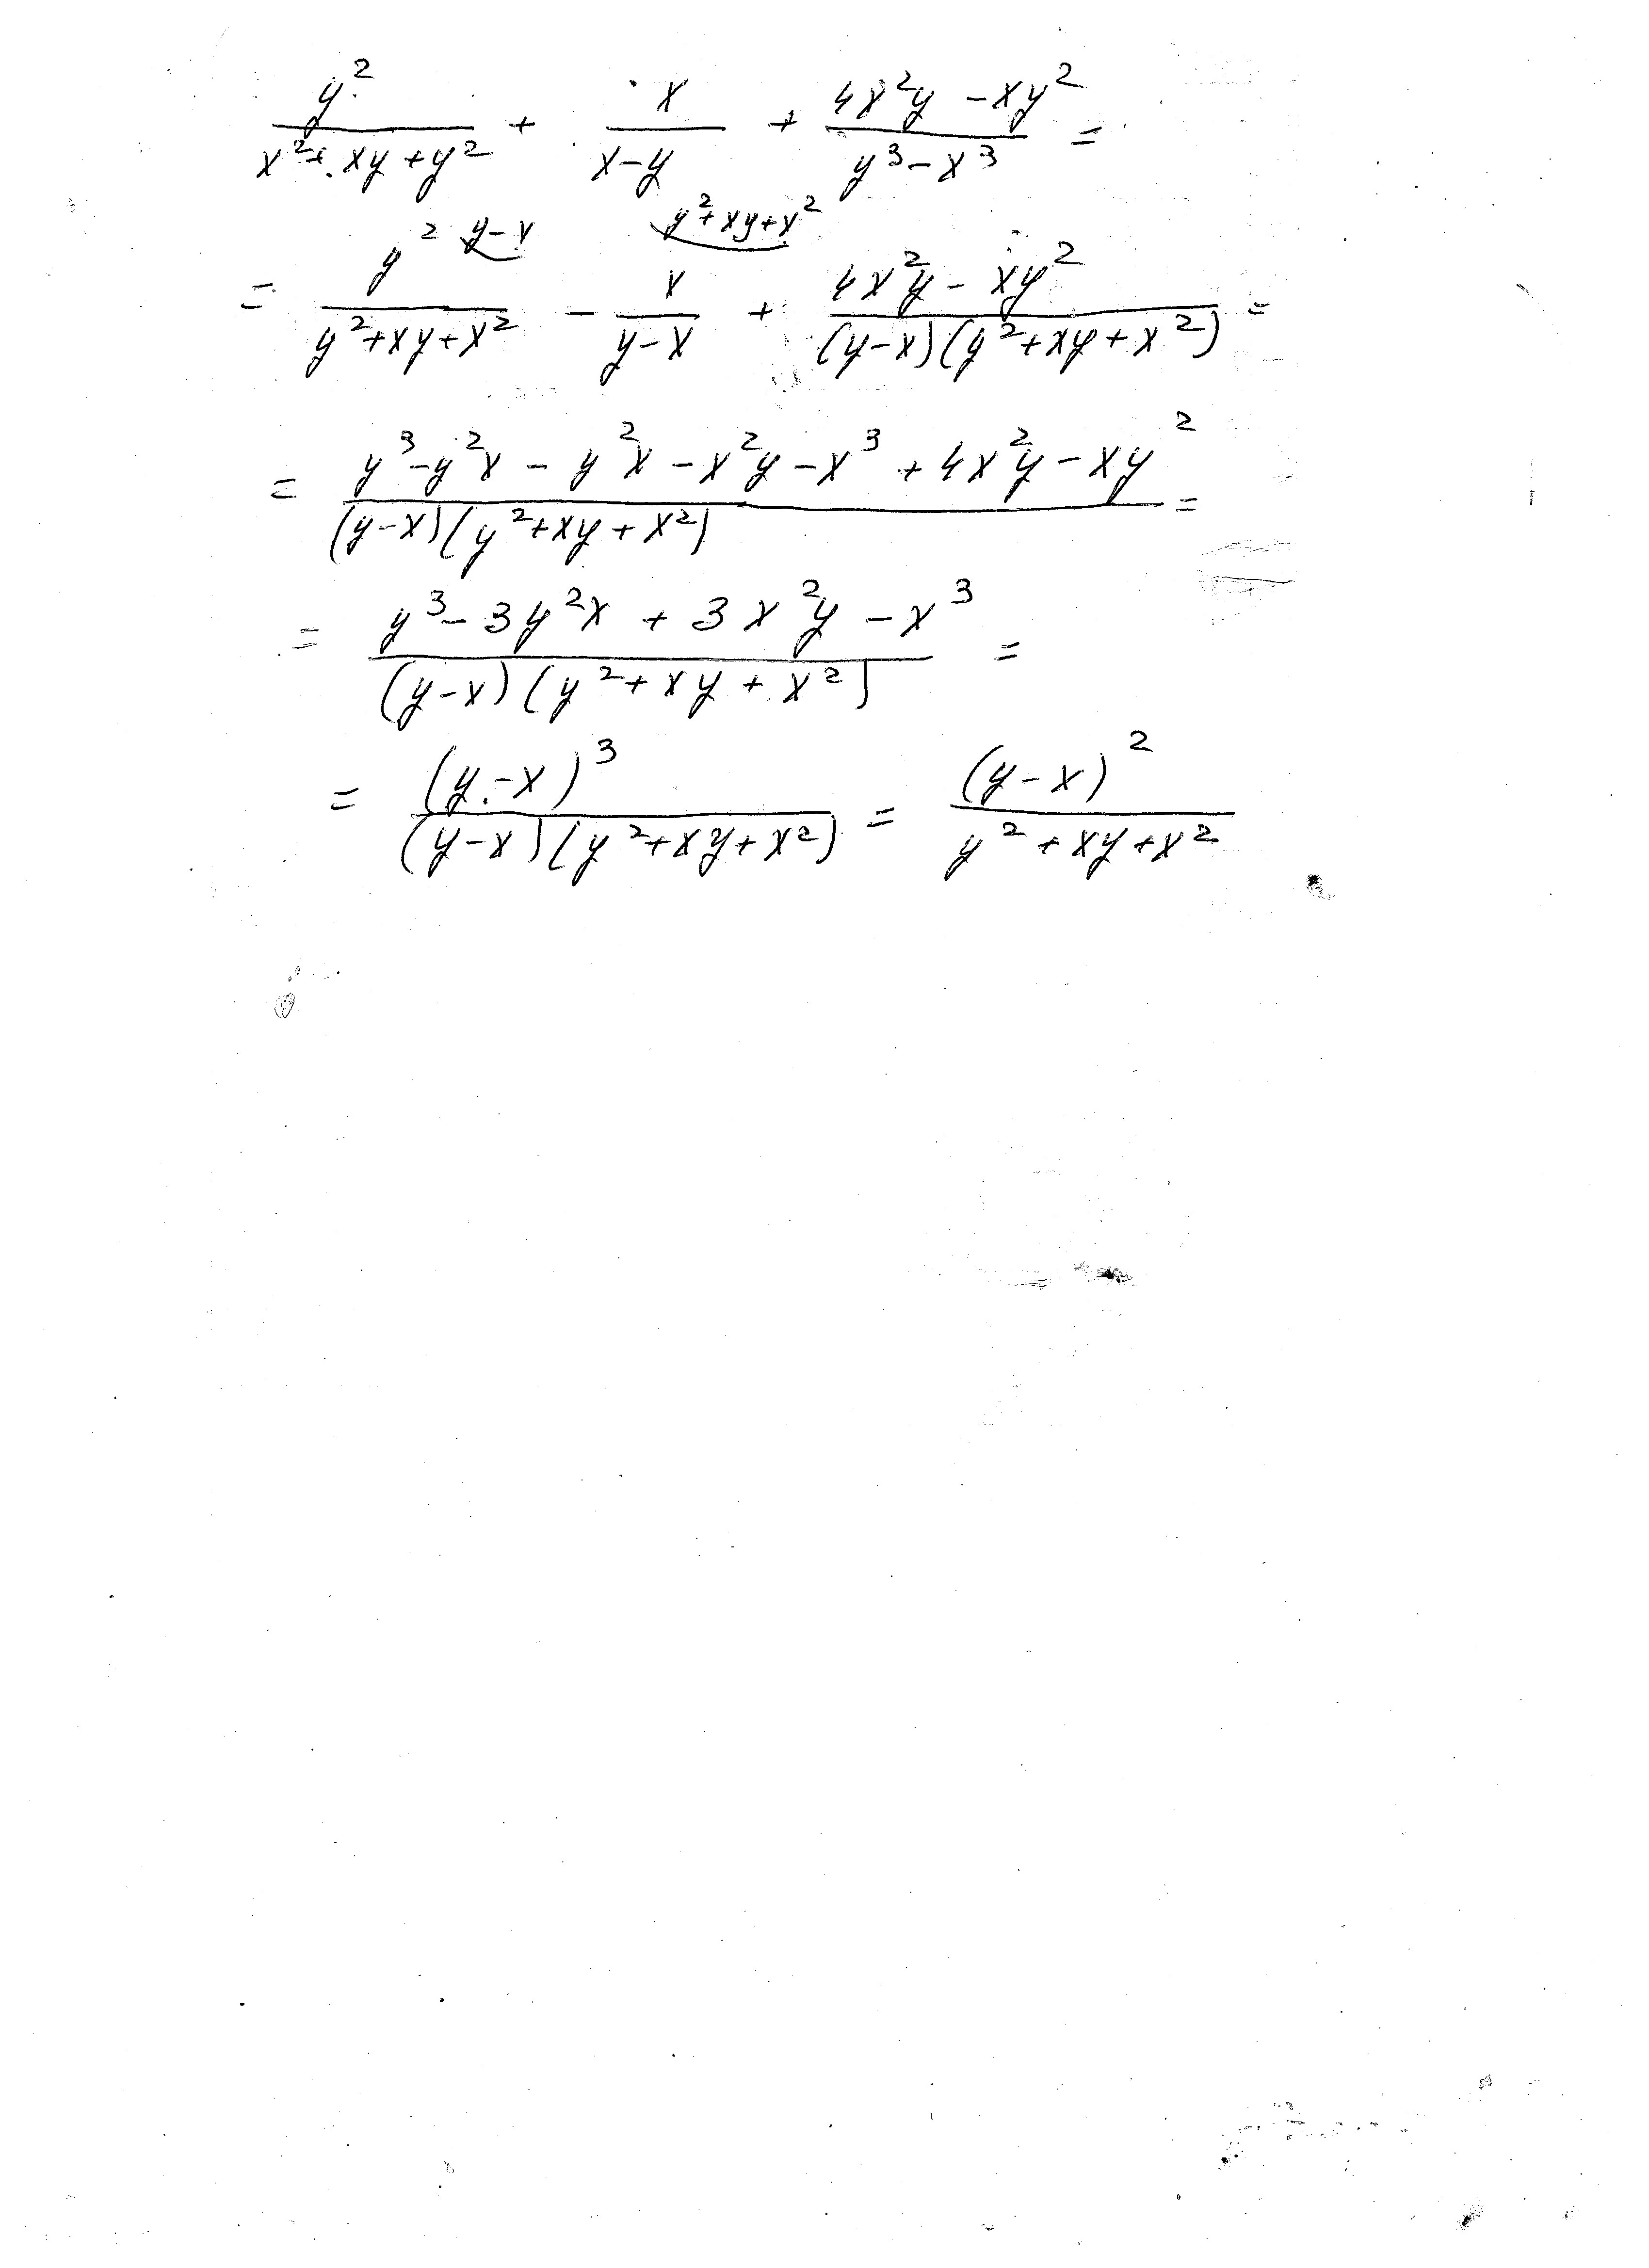 y²/(x²+xy+y²) + x/(x-y) + (4x²y-xy²)/(y³-x³) =
= y² (y-x)/(y²+xy+x²) - x (y²+xy+x²)/(y-x) + (4x²y-xy²)/((y-x)(y²+xy+x²)) =
= (y³-y²x-y²x-x²y-x³+4x²y-xy²)/((y-x)(y²+xy+x²)) =
= (y³-3y²x+3x²y-x³)/((y-x)(y²+xy+x²)) =
= (y-x)³/((y-x)(y²+xy+x²)) = (y-x)²/(y²+xy+x²)